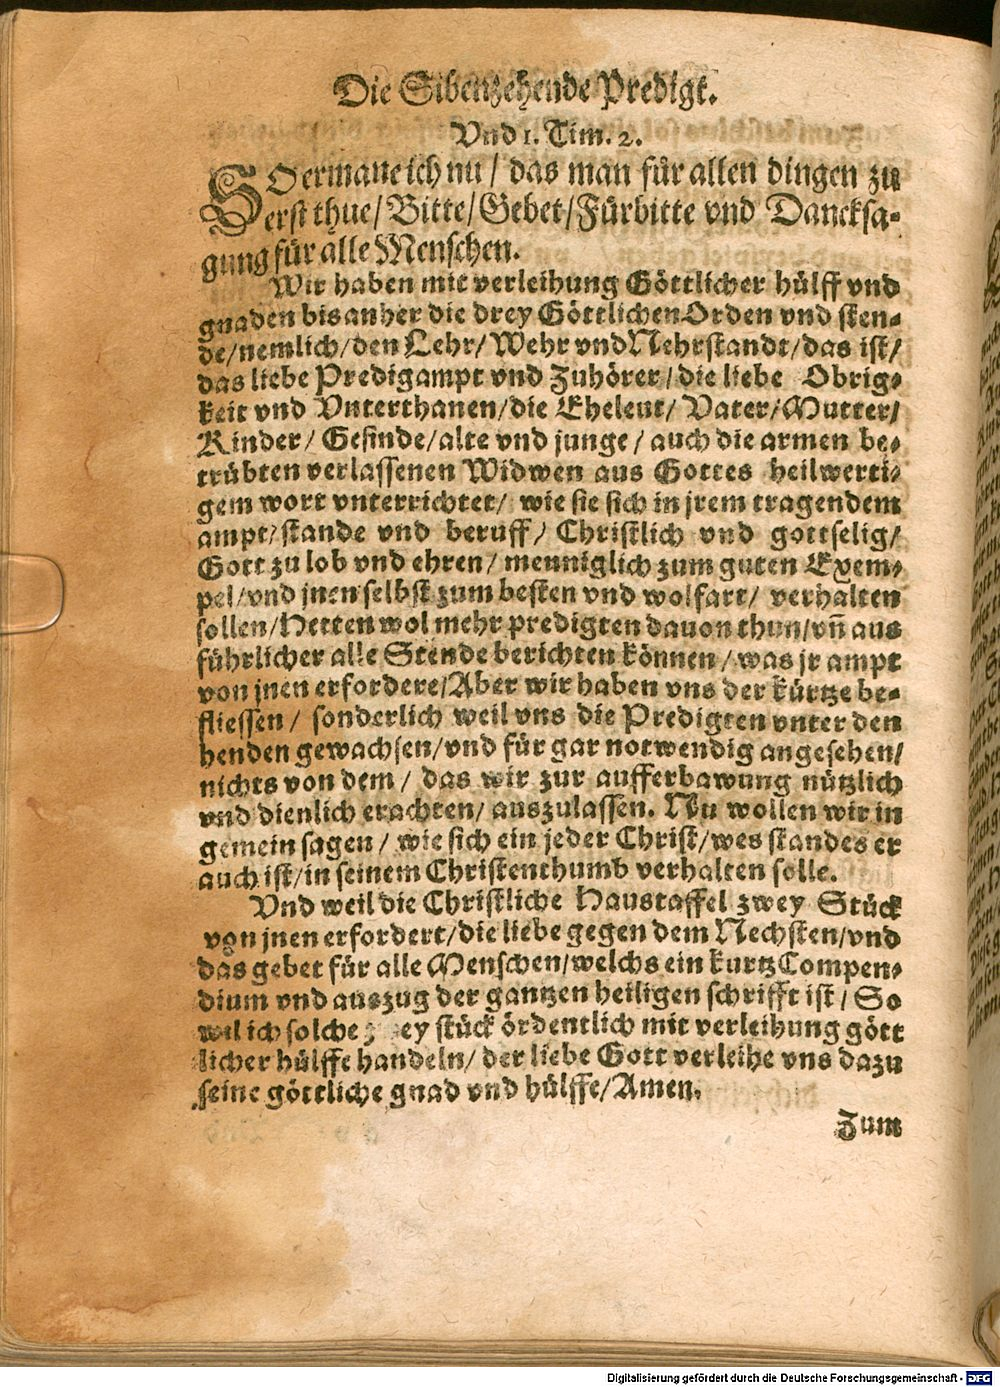 Die Sibenzehende Predigt.
Vnd 1. Tim. 2.
SOermane ich nu / das man für allen dingen zu
erst thue/ Bitte/ Gebet/ Fürbitte vnd Dancksa-
gung für alle Menschen.
Wir haben mit verleihung Göttlicher hülff vnd
gnaden bis anher die drey Göttlichen Orden vnd sten-
de/ nemlich/ den Lehr/ Wehr vnd Nehrstandt/ das ist/
das liebe Predigampt vnd Zuhörer/ die liebe Obrig-
keit vnd Vnterthanen/ die Eheleut/ Vater/ Mutter/
Kinder/ Gesinde/ alte vnd junge / auch die armen be-
trübten verlassenen Widwen aus Gottes heilwerti-
gem wort vnterrichtet/ wie sie sich in jrem tragendem
ampt/ stande vnd beruff/ Christlich vnd gottselig/
Gott zu lob vnd ehren/ menniglich zum guten Exem-
pel/ vnd jnen selbst zum besten vnd wolfart/ verhalten
sollen/ Hetten wol mehr predigten dauon thun/ vn̄ aus
führlicher alle Stende berichten können / was jr ampt
von jnen erfordere/ Aber wir haben vns der kürtze be-
fliessen / sonderlich weil vns die Predigten vnter den
henden gewachsen/ vnd für gar notwendig angesehen/
nichts von dem / das wir zur aufferbawung nützlich
vnd dienlich erachten/ auszulassen. Nu wollen wir in
gemein sagen / wie sich ein jeder Christ/ wes standes er
auch ist/ in seinem Christenthumb verhalten solle.
Vnd weil die Christliche Haustaffel zwey Stück
von jnen erfordert/ die liebe gegen dem Nechsten/ vnd
das gebet für alle Menschen/ welchs ein kurtz Compen-
dium vnd auszug der gantzen heiligen schrifft ist / So
wil ich solche stück ördentlich mit verleihung gött
licher hülffe handeln/ der liebe Gott verleihe vns dazu
seine göttliche gnad vnd hülffe/ Amen.
Zum
Digitalisierung gefördert durch die Deutsche Forschungsgemeinschaft - DFG